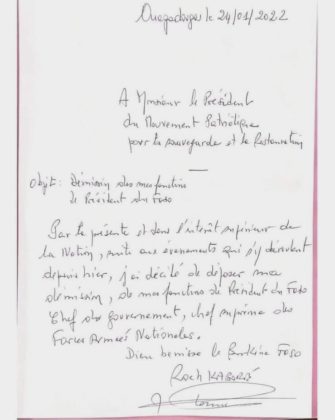 Ouagadougou le 24/01/2022
A Monsieur le Président
du Mouvement Patriotique
pour la sauvegarde et la Restauration
Objet : Démission de mes fonctions
de Président du Faso
Par la présente et dans l'intérêt supérieur de
la Nation, suite aux évenements qui s'y déroulent
depuis hier, j'ai décidé de déposer ma
démission, de mes fonctions de Président du Faso
Chef du gouvernement, chef suprême des
Forces Armées Nationales.
Dieu bénisse le Burkina Faso
Roch KABORÉ